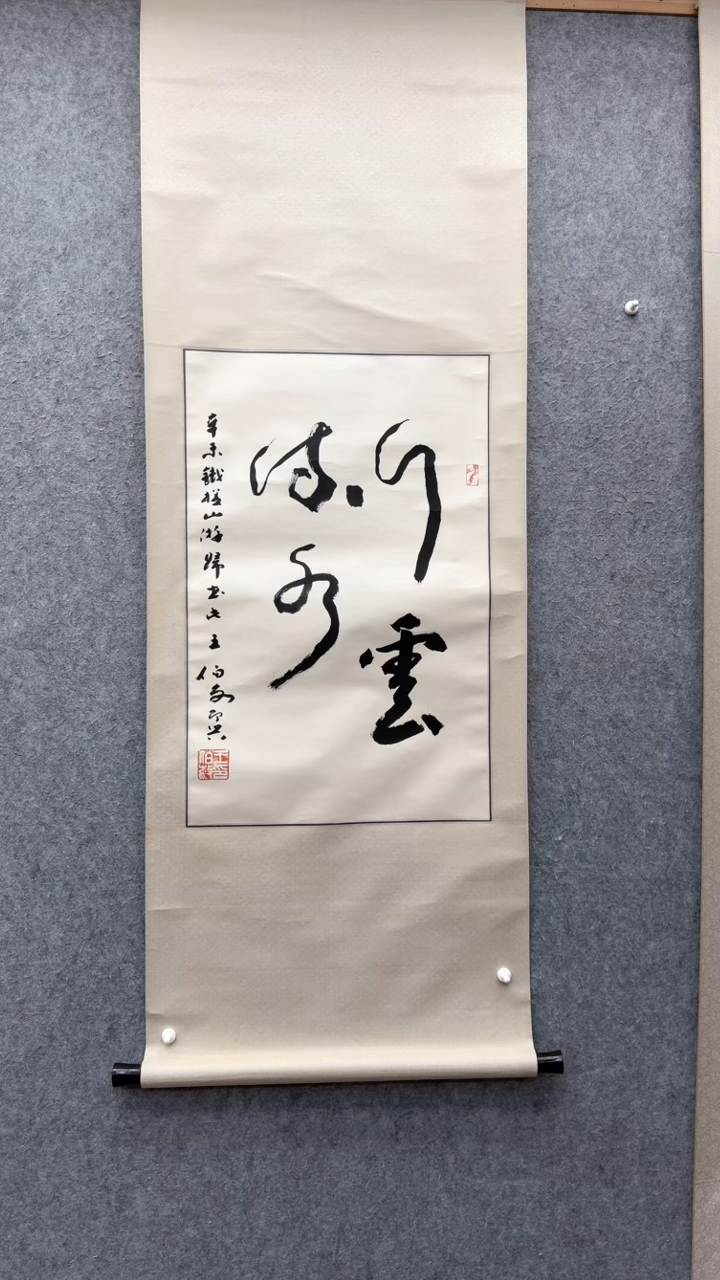 行雲
流水
辛未鐵槎山游歸書此王伯敏